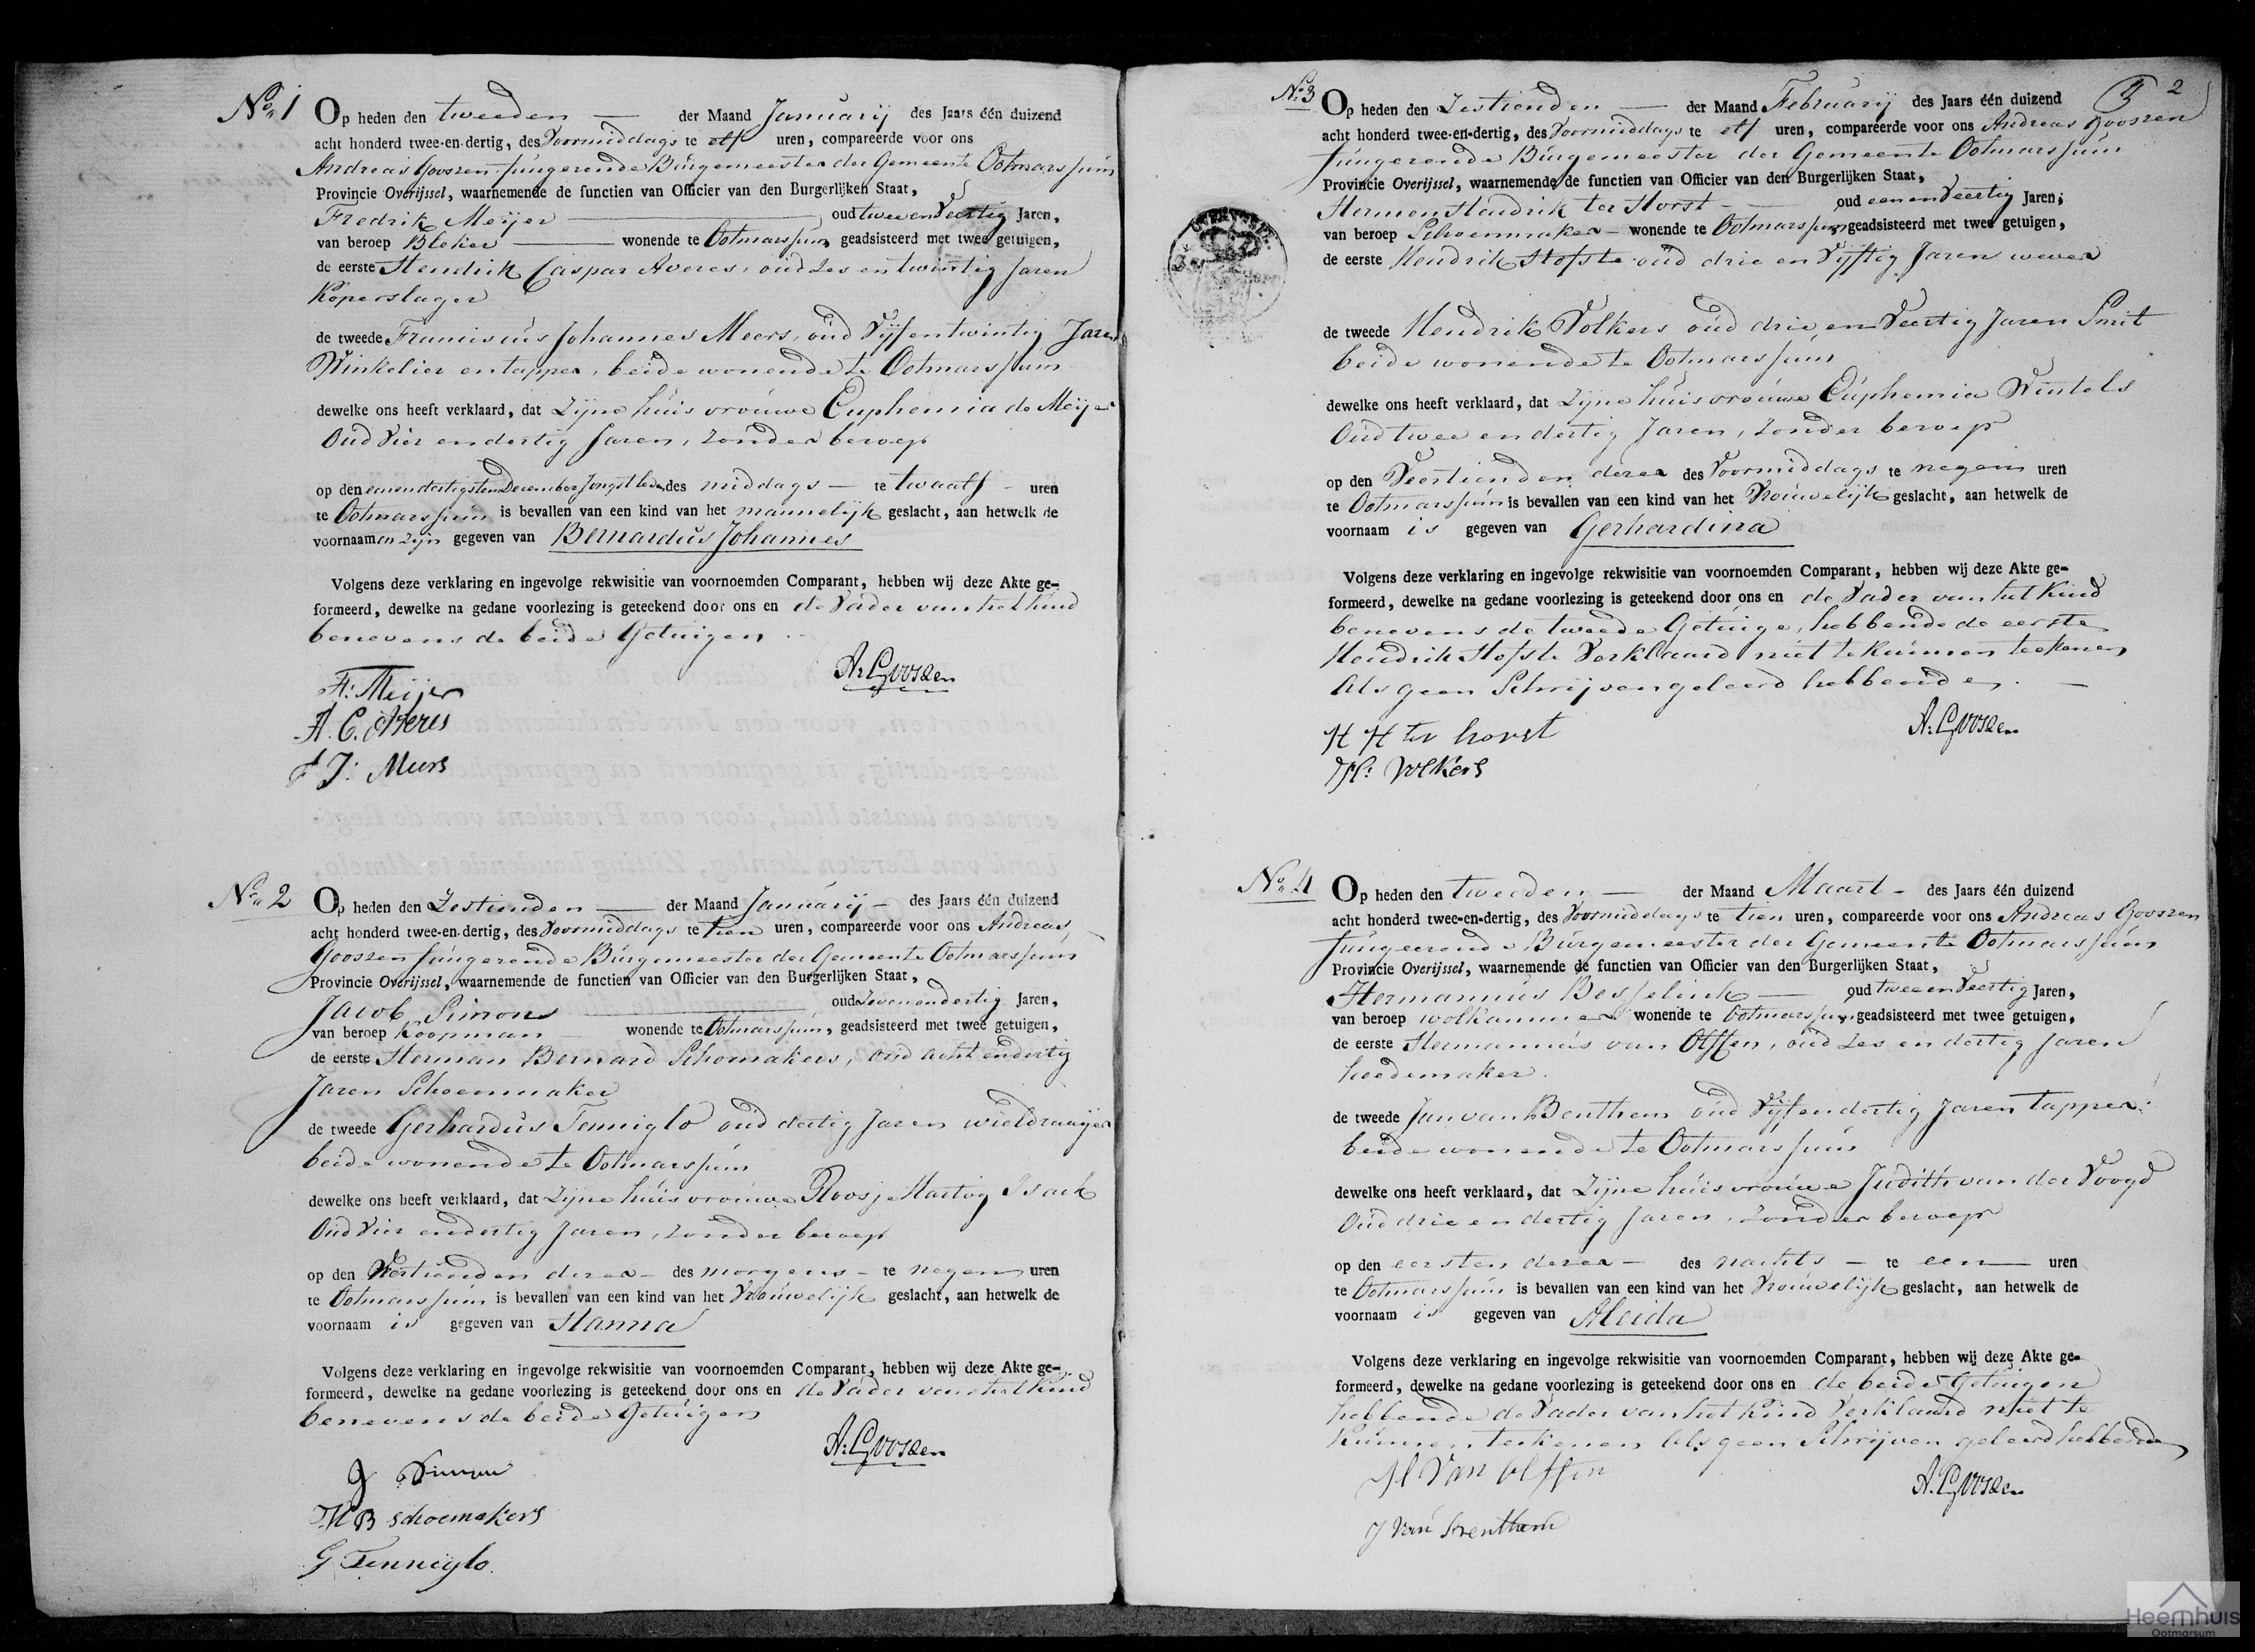 No. 1
Op heden den tweeden — der Maand Januarij des Jaars één duizend
acht honderd twee-en-dertig, des Voormiddags te elf uren, compareerde voor ons
Andreas Goossen fungerende Burgemeester der Gemeente Ootmarssum
Provincie Overijssel, waarnemende de functien van Officier van den Burgerlijken Staat,
Fredrik Meijer — oud twee en Veertig Jaren,
van beroep Bleker — wonende te Ootmarssum geadsisteerd met twee getuigen,
de eerste Hendrik Caspar Averes, oud zes en twintig Jaren
Koperslager
de tweede Franciscus Johannes Meers, oud Vijf en twintig Jaren
Winkelier en tapper, beide wonende te Ootmarssum
dewelke ons heeft verklaard, dat Zijne huisvrouwe Euphemia de Meijer
Oud Vier en dertig Jaren, zonder beroep
op den eenendertigsten December Jongstleden des middags — te twaalf — uren
te Ootmarssum is bevallen van een kind van het mannelijk geslacht, aan hetwelk de
voornaamen zijn gegeven van Bernardus Johannes
Volgens deze verklaring en ingevolge rekwisitie van voornoemden Comparant, hebben wij deze Akte ge-
formeerd, dewelke na gedane voorlezing is geteekend door ons en de Vader van het kind
benevens de beide Getuigen
A. Goossen
F: Meijer
H. C. Averes
F J: Meers
No. 2
Op heden den Zestienden — der Maand Januarij — des Jaars één duizend
acht honderd twee-en-dertig, des Voormiddags te tien uren, compareerde voor ons Andreas
Goossen fungerende Burgemeester der Gemeente Ootmarssum
Provincie Overijssel, waarnemende de functien van Officier van den Burgerlijken Staat,
Jacob Simons — oud Zeven en dertig Jaren,
van beroep Koopman — wonende te Ootmarssum, geadsisteerd met twee getuigen,
de eerste Herman Bernard Schomakers, oud acht en dertig
Jaren Schoenmaker
de tweede Gerhardus Tenniglo oud dertig Jaren wieldraaijer
beide wonende te Ootmarssum
dewelke ons heeft verklaard, dat Zijne huisvrouwe Roosje Hartog Isack
Oud Vier en dertig Jaren, zonder beroep
op den Veertienden dezer — des morgens — te negen uren
te Ootmarssum is bevallen van een kind van het Vrouwelijk geslacht, aan hetwelk de
voornaam is gegeven van Hanna
Volgens deze verklaring en ingevolge rekwisitie van voornoemden Comparant, hebben wij deze Akte ge-
formeerd, dewelke na gedane voorlezing is geteekend door ons en de Vader van het kind
benevens de beide Getuigen
A. Goossen
J Simons
H B schoemakers
G Tenniglo.
2
No. 3
Op heden den Zestienden — der Maand Februarij des Jaars één duizend
acht honderd twee-en-dertig, des Voormiddags te elf uren, compareerde voor ons Andreas Goossen
fungerende Burgemeester der Gemeente Ootmarssum
Provincie Overijssel, waarnemende de functien van Officier van den Burgerlijken Staat,
Hermen Hendrik ter Horst — oud een en Veertig Jaren,
van beroep Schoenmaker — wonende te Ootmarssum geadsisteerd met twee getuigen,
de eerste Hendrik Hofste oud drie en Vijftig Jaren wever
de tweede Hendrik Volkers oud drie en Veertig Jaren Smit
beide wonende te Ootmarssum
dewelke ons heeft verklaard, dat Zijne huisvrouwe Euphemia Wintels
Oud twee en dertig Jaren, zonder beroep
op den Veertienden dezer des Voormiddags te negen uren
te Ootmarssum is bevallen van een kind van het Vrouwelijk geslacht, aan hetwelk de
voornaam is gegeven van Gerhardina
Volgens deze verklaring en ingevolge rekwisitie van voornoemden Comparant, hebben wij deze Akte ge-
formeerd, dewelke na gedane voorlezing is geteekend door ons en de Vader van het Kind
benevens de tweede Getuige, hebbende de eerste
Hendrik Hofste Verklaard niet te kunnen teekenen
Als geen Schrijven geleerd hebbende. —
A. Goossen
H H ter horst
H: Volkers
No. 4
Op heden den tweeden — der Maand Maart — des Jaars één duizend
acht honderd twee-en-dertig, des Voormiddags te tien uren, compareerde voor ons Andreas Goossen
fungeerende Burgemeester der Gemeente Ootmarssum
Provincie Overijssel, waarnemende de functien van Officier van den Burgerlijken Staat,
Hermannus Besselink — oud twee en Veertig Jaren,
van beroep wolkammer wonende te Ootmarssum geadsisteerd met twee getuigen,
de eerste Hermannus van Olffen, oud zes en dertig Jaren
hoedemaker.
de tweede Jan van Benthem oud Vijf en dertig Jaren tapper
beide wonende te Ootmarssum
dewelke ons heeft verklaard, dat Zijne huisvrouwe Judith van der Voogd
Oud drie en dertig Jaren, zonder beroep
op den eersten dezer — des nachts — te een — uren
te Ootmarssum is bevallen van een kind van het Vrouwelijk geslacht, aan hetwelk de
voornaam is gegeven van Aleida
Volgens deze verklaring en ingevolge rekwisitie van voornoemden Comparant, hebben wij deze Akte ge-
formeerd, dewelke na gedane voorlezing is geteekend door ons en de beide Getuigen
hebbende de Vader van het Kind Verklaard niet te
kunnen teekenen Als geen Schrijven geleerd hebbende
A. Goossen
H Van Olffen
J Van Benthem
Heemhuis
Ootmarsum